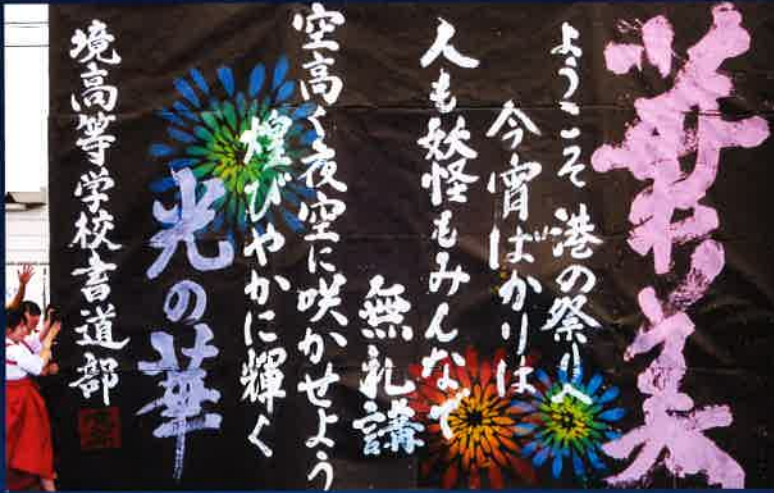 華美
ようこそ 港の祭りへ
今宵ばかりは
人も妖怪もみんなで
無礼講
空高く夜空に咲かせよう
煌びやかに輝く
光の華
境高等学校書道部